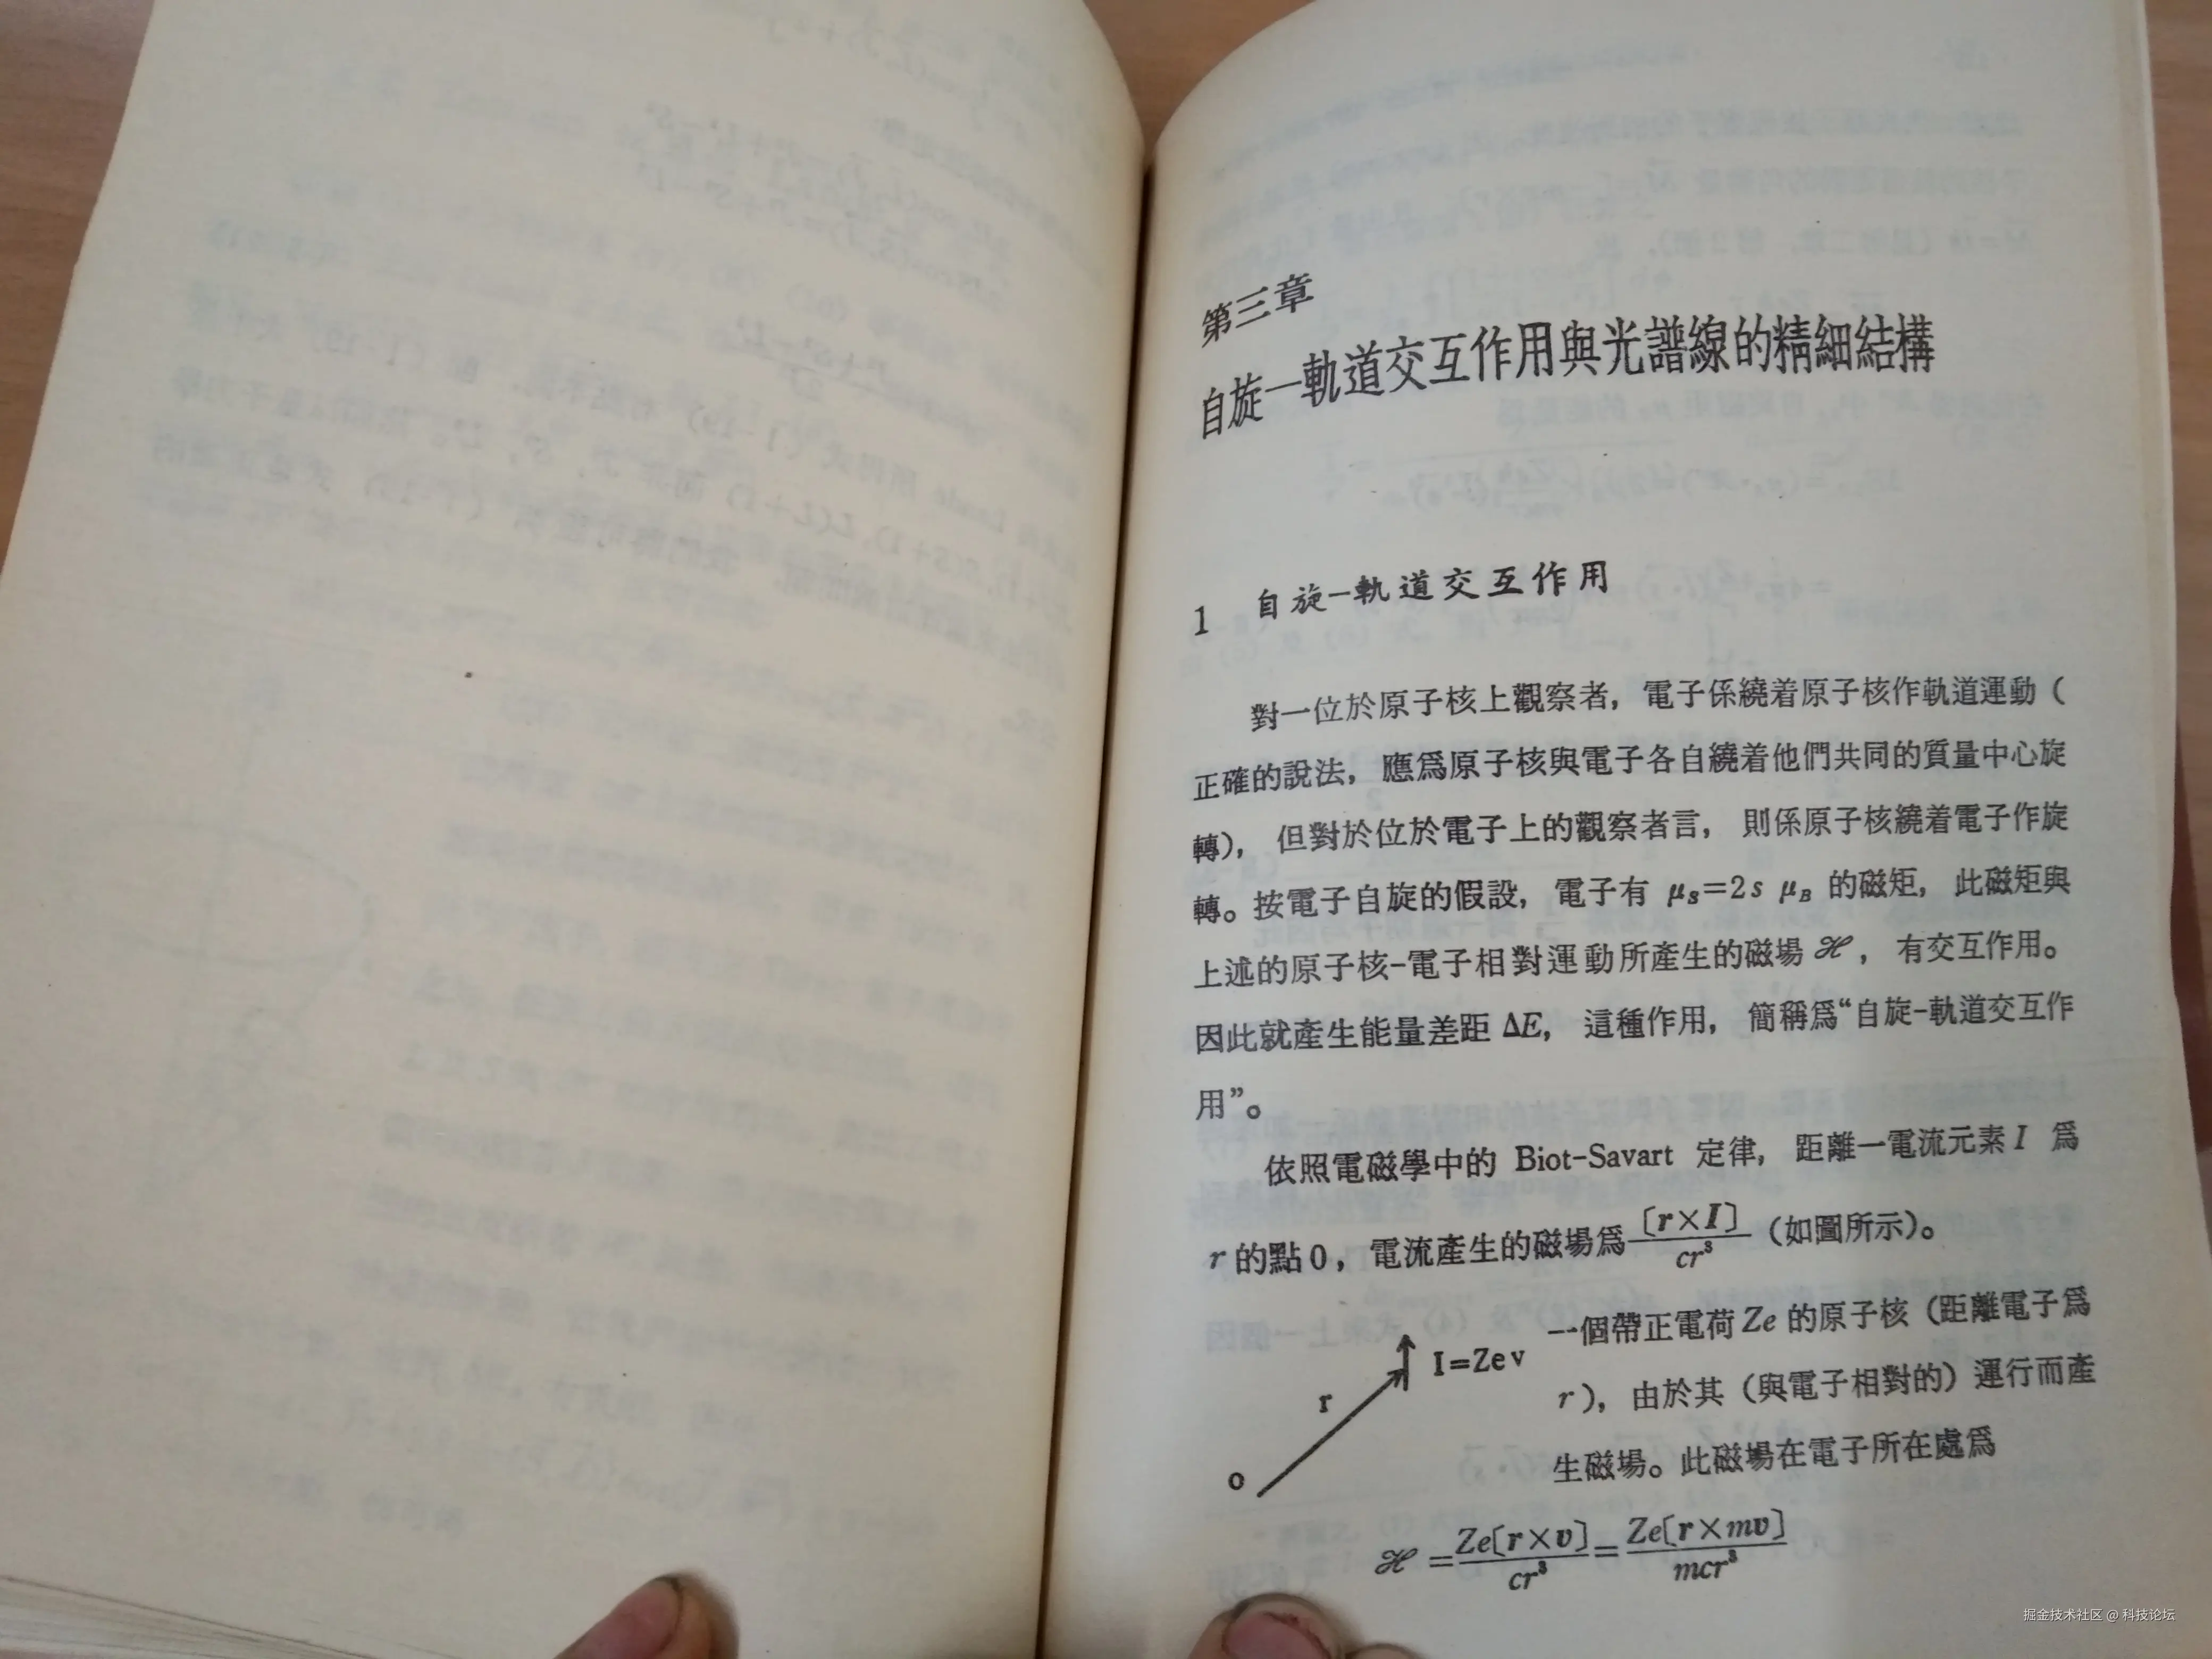 第三章
自旋—軌道交互作用與光譜線的精細結構
1 自旋-軌道交互作用
對一位於原子核上觀察者，電子係繞着原子核作軌道運動（
正確的說法，應爲原子核與電子各自繞着他們共同的質量中心旋
轉），但對於位於電子上的觀察者言，則係原子核繞着電子作旋
轉。按電子自旋的假設，電子有 μs=2s μB 的磁矩，此磁矩與
上述的原子核-電子相對運動所產生的磁場ℋ，有交互作用。
因此就產生能量差距 ΔE，這種作用，簡稱爲“自旋-軌道交互作
用”。
依照電磁學中的 Biot-Savart 定律，距離一電流元素 I 爲
r 的點0，電流產生的磁場爲 [r×I]/cr³（如圖所示）。
一個帶正電荷 Ze 的原子核（距離電子爲
I=Zev
r
r），由於其（與電子相對的）運行而產
生磁場。此磁場在電子所在處爲
o
ℋ = Ze[r×v]/cr³ = Ze[r×mv]/mcr³
掘金技术社区 @ 科技论坛